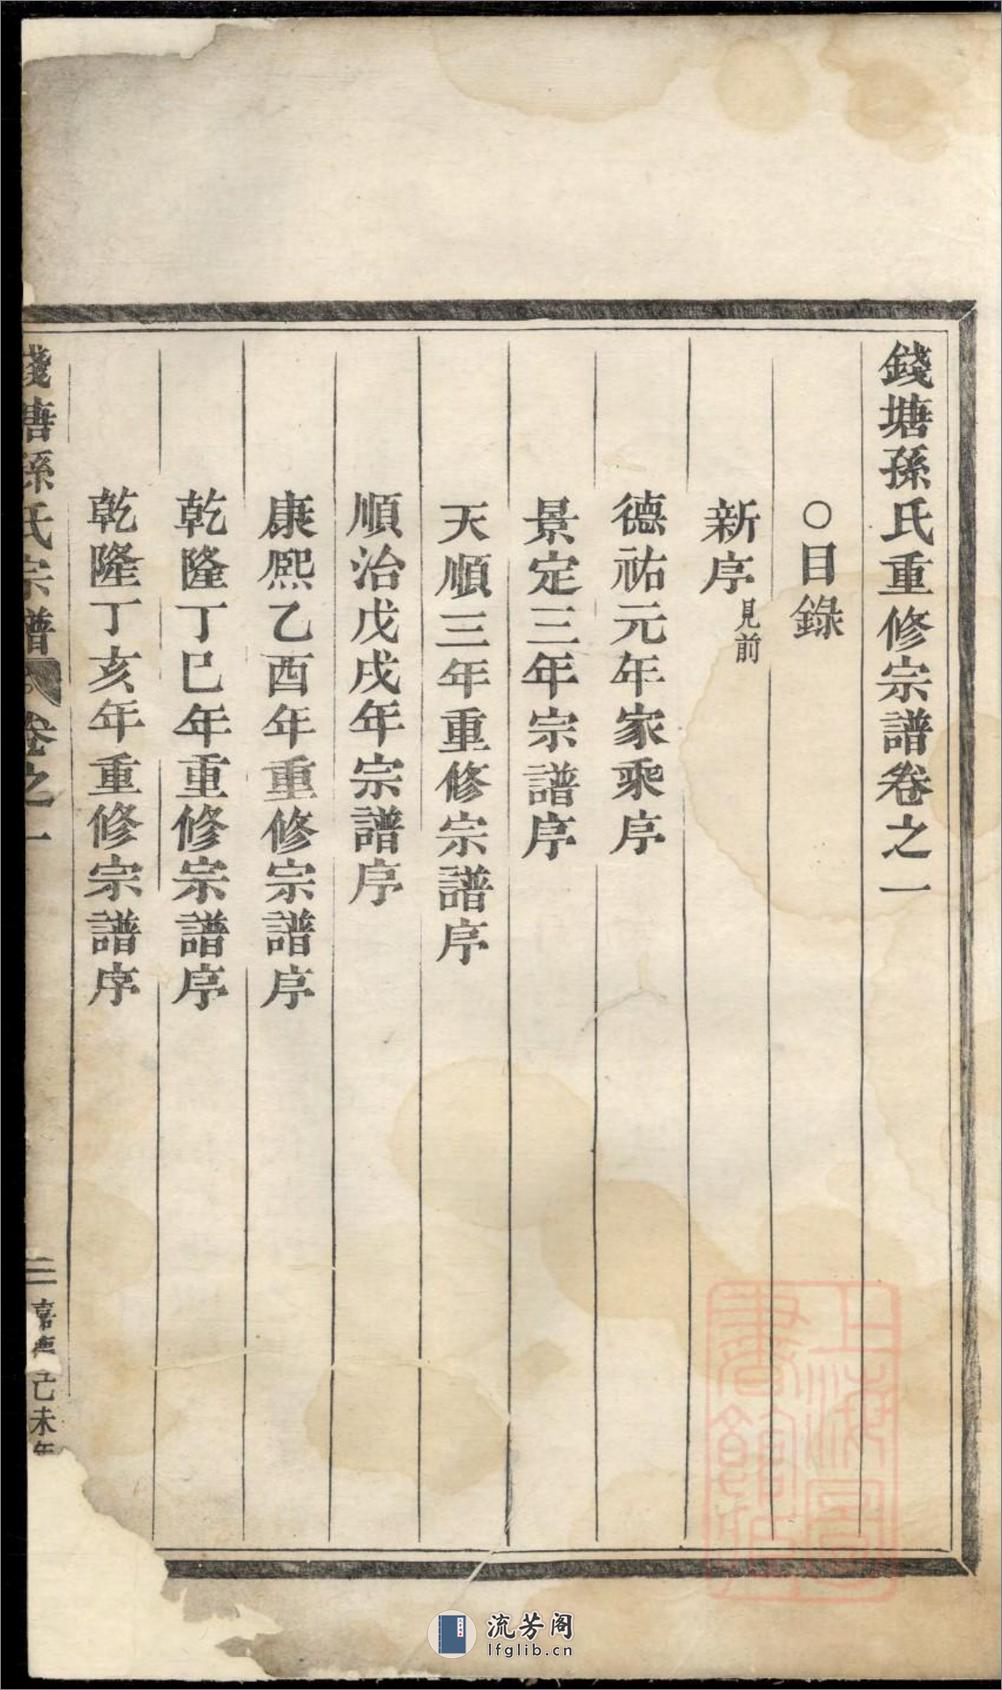 錢塘孫氏重修宗譜卷之一
○目錄
新序見前
德祐元年家乘序
景定三年宗譜序
天順三年重修宗譜序
順治戊戌年宗譜序
康熙乙酉年重修宗譜序
乾隆丁巳年重修宗譜序
乾隆丁亥年重修宗譜序
錢塘孫氏宗譜 卷之一 三 嘉慶己未年
上海圖書館藏
流芳阁
lfglib.cn